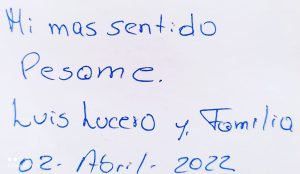 Mi mas sentido
Pesame.
Luis Lucero y Familia
02- Abril- 2022